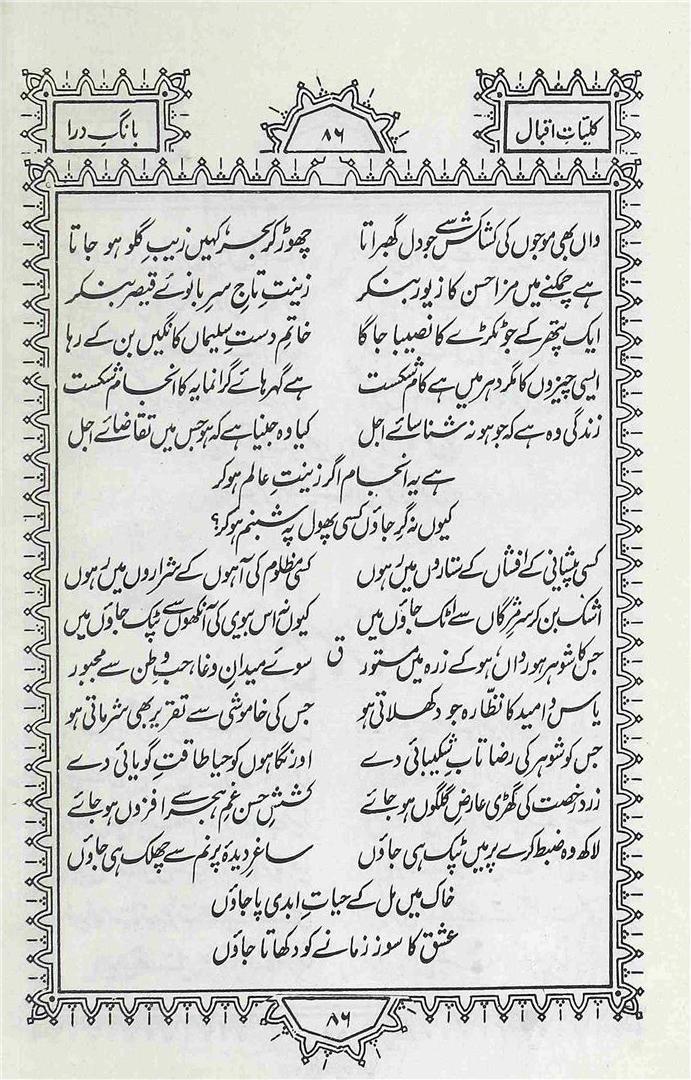 کلیّاتِ اقبال ۸۶ بانگِ درا
واں بھی موجوں کی کشاکش سے جو دل گھبراتا چھوڑ کر بحر کہیں زیبِ گلو ہو جاتا
ہے چمکنے میں مزا حسن کا زیور بنکر زینتِ تاجِ سرِ بانوئے قیصر بنکر
ایک پتھر کے جو ٹکڑے کا نصیبا جاگا خاتمِ دستِ سلیماں کا نگیں بن کے رہا
ایسی چیزوں کا مگر دہر میں ہے کام شکست ہے گہر ہائے گرانمایہ کا انجام شکست
زندگی وہ ہے کہ جو ہو نہ شناسائے اجل کیا وہ جینا ہے کہ ہو جس میں تقاضائے اجل
ہے یہ انجام اگر زینتِ عالم ہو کر
کیوں نہ گر جاؤں کسی پھول پہ شبنم ہو کر؟
کسی پیشانی کے افشاں کے ستاروں میں رہوں کسی مظلوم کی آہوں کے شراروں میں رہوں
اشک بن کر سرِ مژگاں سے اٹک جاؤں میں کیوں نہ اس بیوی کی آنکھوں سے ٹپک جاؤں میں
ق
جس کا شوہر ہو رواں، ہو کے زرہ میں مستور سوئے میدانِ وغا، حبِ وطن سے مجبور
یاس و امید کا نظّارہ جو دکھلاتی ہو جس کی خاموشی سے تقریر بھی شرماتی ہو
جس کو شوہر کی رضا تابِ شکیبائی دے اور نگاہوں کو حیا طاقتِ گویائی دے
زرد، رخصت کی گھڑی، عارضِ گلگوں ہو جائے کششِ حسن غمِ ہجر سے افزوں ہو جائے
لاکھ وہ ضبط کرے پر میں ٹپک ہی جاؤں ساغرِ دیدۂ پرنم سے چھلک ہی جاؤں
خاک میں مل کے حیاتِ ابدی پا جاؤں
عشق کا سوز زمانے کو دکھاتا جاؤں
۸۶